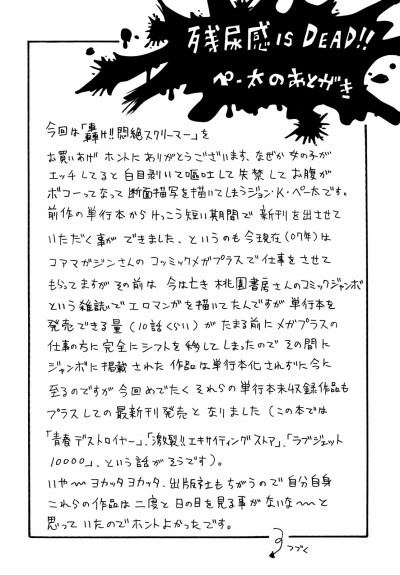 残尿感 IS DEAD!!
ペー太のあとがき
今回は「轟け!!悶絶スクリーマー」を
お買いあげ ホントに ありがとうございます、なぜか 女の子が
エッチしてると 白目剥いて嘔吐して失禁して お腹が
ボコーってなって 断面描写を描いてしまうジョン・K・ペー太です。
前作の単行本から けっこう短い期間で 新刊を出させて
いただく事が できました、というのも今現在(07年)は
コアマガジンさんの コッミックメガプラスで仕事をさせて
もらってますが その前は 今は亡き 桃園書房さんのコミックジャンボ
という雑誌でエロマンガを描いてたんですが 単行本を
発売できる量(10話くらい)が たまる前に メガプラスの
仕事の方に完全にシフトを移してしまったので その間に
ジャンボに掲載された 作品は単行本化されずに今に
至るのですが 今回めでたく それらの 単行本未収録作品も
プラスしての最新刊発売と なりました(この本では
「青春デストロイヤー」、「激製!!エキサイティングストア」、「ラブジェット
10000」、という話が そうです)。
いや〜 ヨカッタ ヨカッタ、出版社もちがうので 自分自身
これらの作品は二度と日の目を見る事がないな〜と
思っていたのでホントよかったです。
つづく